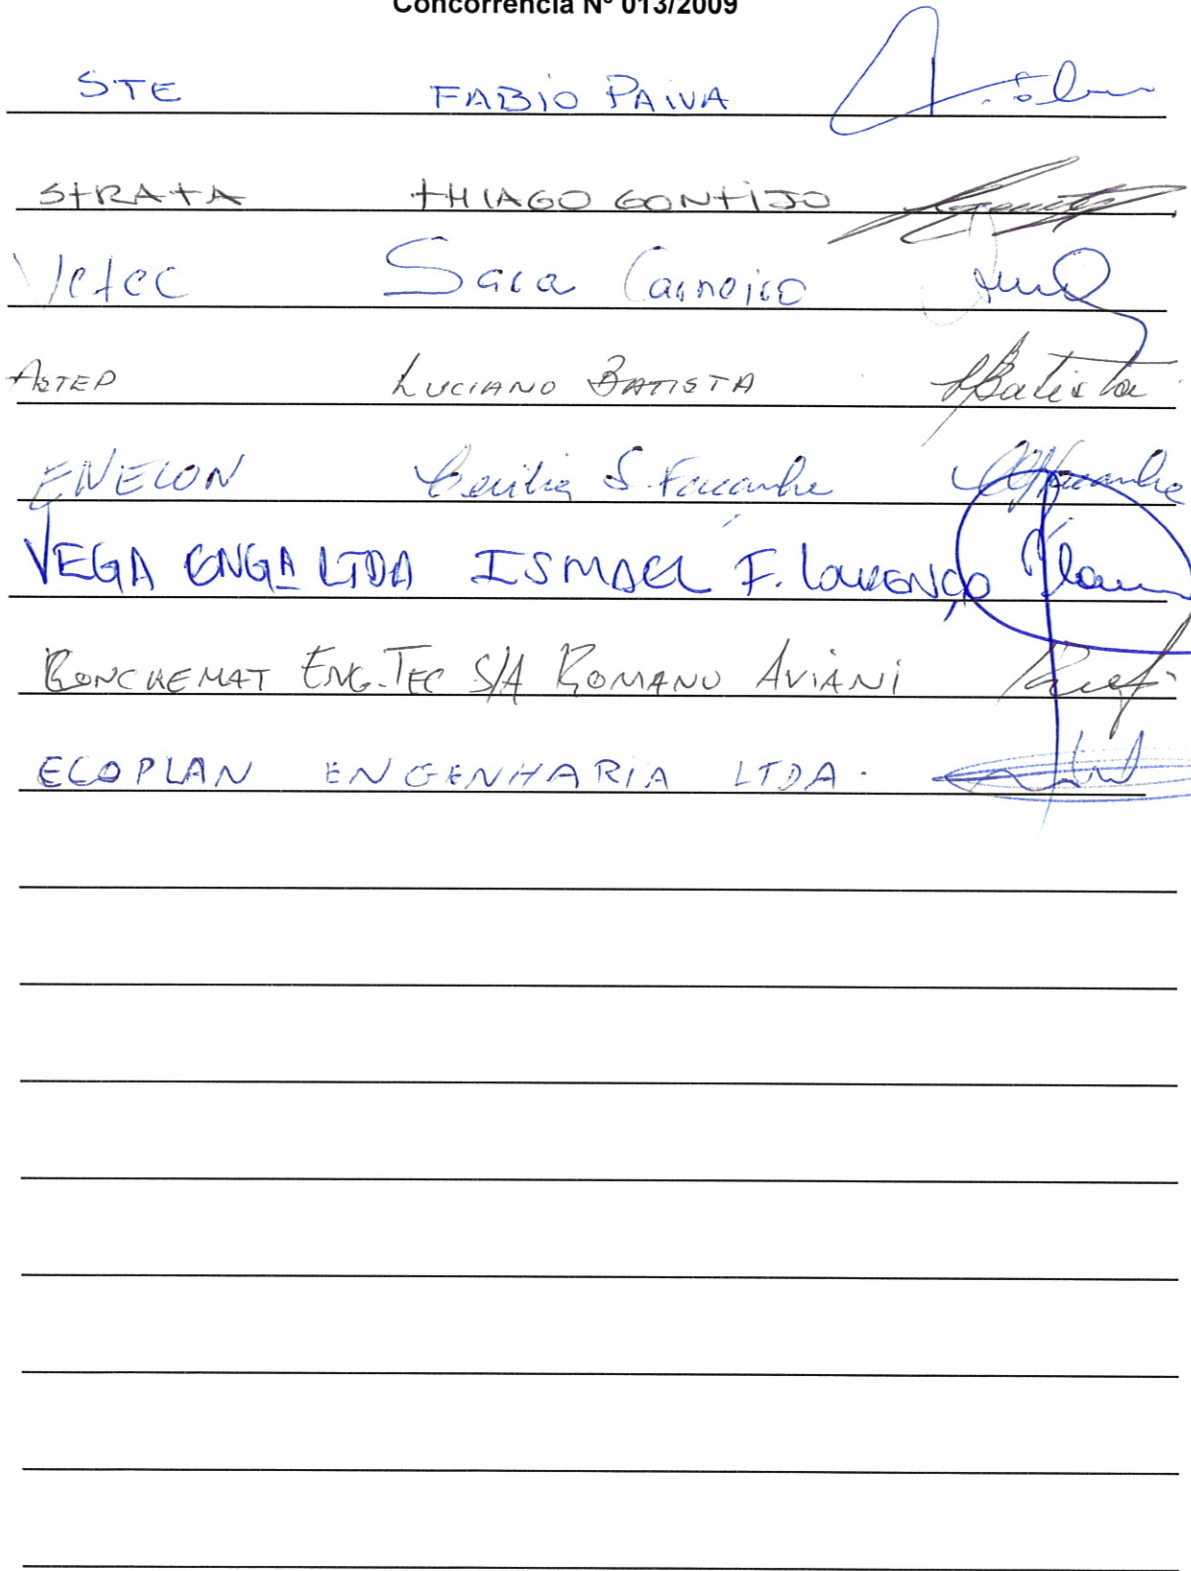 Concorrência Nº 013/2009
STE FABIO PAIVA
STRATA THIAGO GONTIJO
Vetec Sara Carneiro
ASTEP LUCIANO BATISTA LBatista
ENECON Cecilia S. Facanha
VEGA ENGA LTDA ISMAEL F. LOURENÇO
CONCREMAT ENG. TEC S/A ROMANO AVIANI
ECOPLAN ENGENHARIA LTDA.